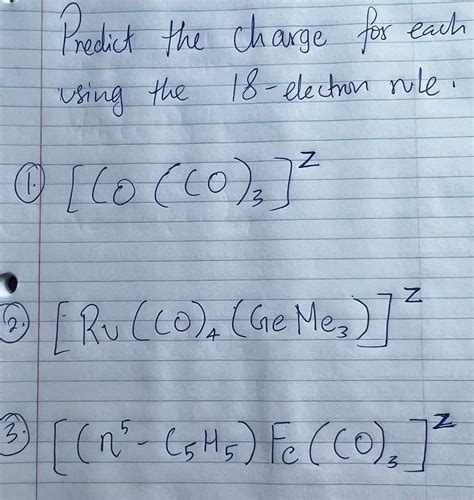 Predict the charge for each
using the 18-electron rule.
1. [Co(CO)₃]ᶻ
2. [Ru(CO)₄(GeMe₃)]ᶻ
3. [(η⁵-C₅H₅)Fe(CO)₃]ᶻ